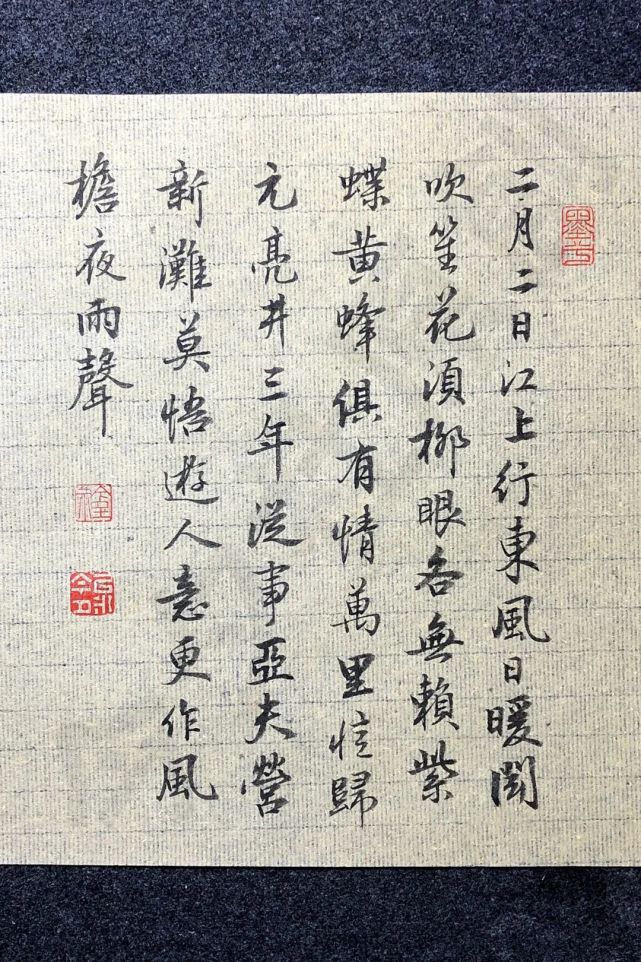 二月二日江上行東風日暖聞
吹笙花須柳眼各無賴紫
蝶黃蜂俱有情萬里憶歸
元亮井三年從事亞夫營
新灘莫悟遊人意更作風
檐夜雨聲